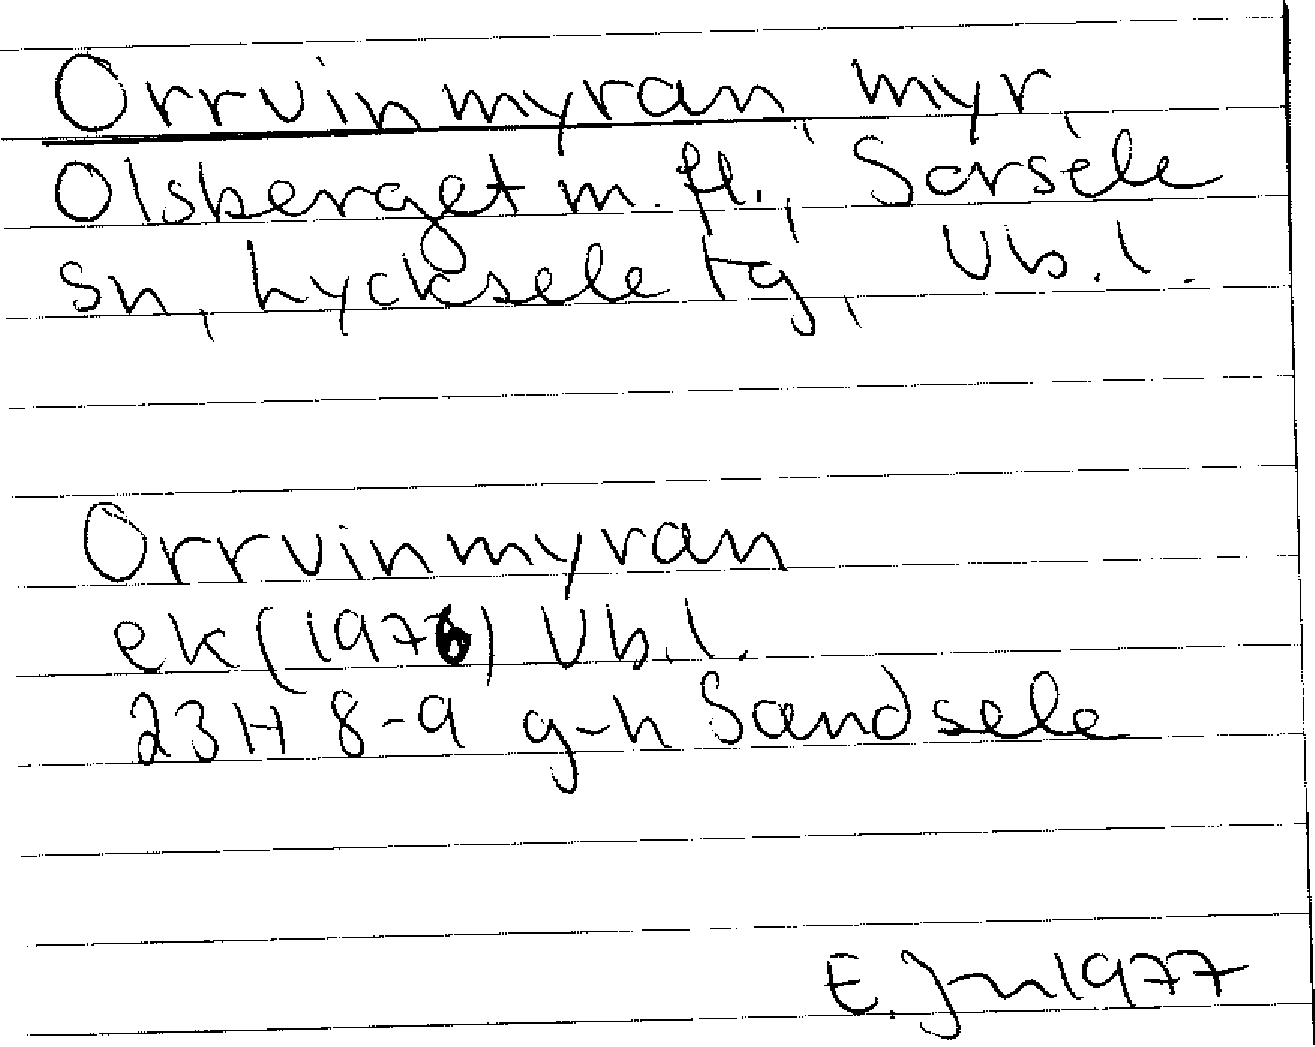 Orrvinmyran, myr,
Olsberget m. fl., Sorsele
sn, Lycksele tg, Vb. l.
Orrvinmyran
ek (1976) Vb. l.
23H 8-9 g-h Sandsele
E. 1977